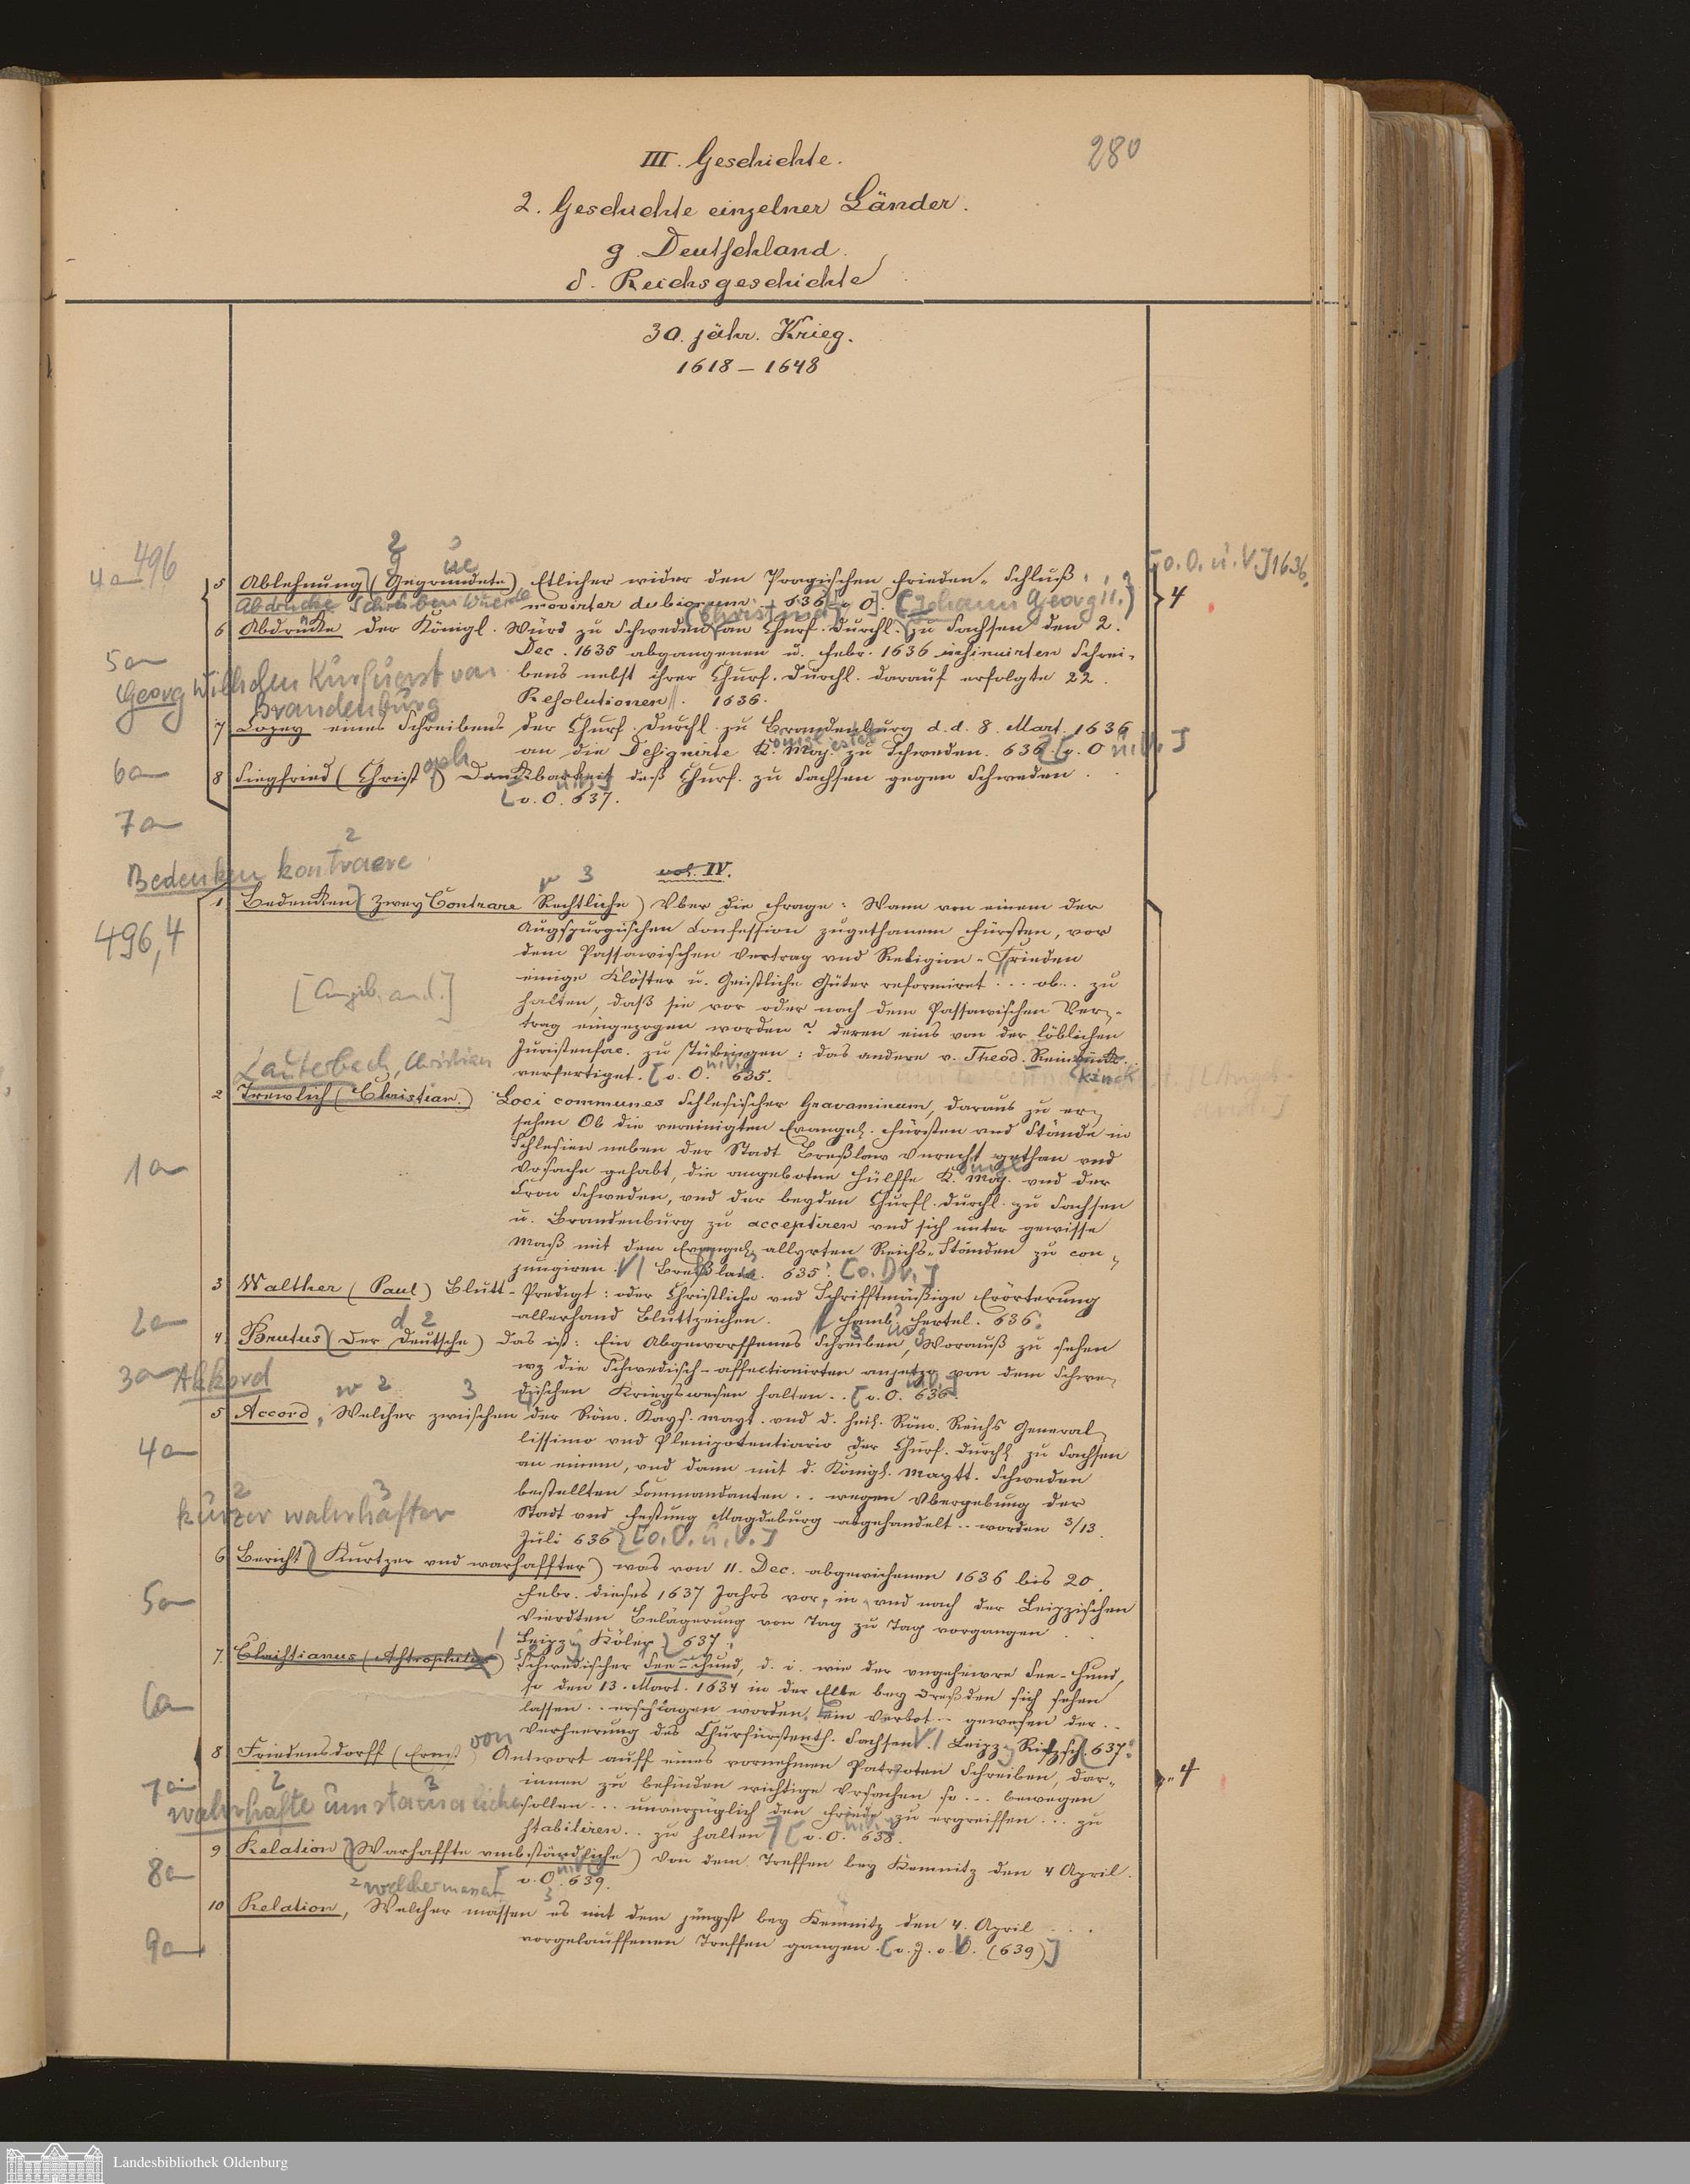 III. Geschichte.
280
2. Geschichte einzelner Länder.
g. Deutschland.
δ. Reichsgeschichte
30. jähr. Krieg.
1618 – 1648
4a 496
5 Ablehnung (Gegründete) Etlicher wider den Pragischen Frieden-Schluß
[o. O. u. V.] 1636.
movirter dubiorum. 636 [o. O]. (Johann Georg II.)
4
6 Abdrücke der Königl. Würd zu Schweden (Christina) an Churf. Durchl. zu Sachsen den 2.
5a
Dec. 1635 abgangenen u. Febr. 1636 insinuirten Schrei-
Georg Wilhelm Kurfuerst von
bens nebst ihrer Churf. Durchl. darauf erfolgte 22.
Brandenburg
Resolutionen. 1636.
7 Copey eines Schreibens der Churf. Durchl. zu Brandenburg d. d. 8. Mart. 1636
an die Designirte K. May. zu Schweden. 636. [o. O u. V.]
6a
8 Siegfried (Christoph) Danckbarkeit deß Churf. zu Sachsen gegen Schweden.
[o. O. 637.
7a
Bedenken kontraere
vol. IV.
1 Bedencken (Zwey Contrare Rechtliche) Vber die Frage: Wann von einem der
496,4
Augspurgischen Confession zugethanem Fürsten, vor
dem Passawischen Vertrag vnd Religion-Frieden
einige Klöster u. Geistliche Güter reformiret ... ob... zu
[Angeb. and.]
halten, daß sie vor oder nach dem Passawischen Ver-
trag eingezogen worden? deren eins von der löblichen
Juristenfac. zu Tübingen: das andere v. Theod. Reinkingk
verfertiget. [o. O. u. V.] 635.
Lauterbach, Christian
2 Trewlich (Christian.) Loci communes Schlesischer Gravaminum, daraus zu er-
sehen Ob die vereinigten Evangel. Fürsten vnd Stände in
Schlesien neben der Stadt Breßlaw Vnrecht gethan vnd
1a
Vrsache gehabt, die angebotene Hülffe K. May. vnd der
Cron Schweden, vnd der beyden Churfl. Durchl. zu Sachsen
u. Brandenburg zu acceptiren vnd sich unter gewisse
Maß mit dem Evangel. allyrten Reichs-Ständen zu con-
jungiren. Breßlau. 635. [o. Dr.]
3 Walther (Paul) Blutt-Predigt: oder Christliche vnd Schrifftmäßige Erörterung
2a
allerhand Bluttzeichen. Hamb. Hertel. 636.
4 Brutus (Der Deutsche) Das ist: Ein Abgeworffenes Schreiben, Worauß zu sehen
wz die Schwedisch-affectionirten anjetzo von dem Schwe-
3a Akkord
dischen Kriegswesen halten.. [o. O. u. V.] 636.
5 Accord, Welcher zwischen der Röm. Kays. Mayt. vnd d. heil. Röm. Reichs General-
4a
lissimo vnd Plenipotentiario der Churf. Durchl. zu Sachsen
an einem, vnd dann mit d. Königl. Maytt. Schweden
bestellten Commandanten.. wegen Vbergebung der
kurzer wahrhafter
Stadt vnd Festung Magdeburg abgehandelt.. worden 3/13.
Juli 636 [o. O. u. V.]
6 Bericht (Kurtzer vnd warhaffter) was von 11. Dec. abgewichenen 1636 bis 20.
5a
Febr. dieses 1637 Jahrs vor, in vnd nach der Leipzischen
Vierdten Belägerung von Tag zu Tag vorgangen.
Leipzig Köler 637.
7. Christianus (Astrophilus) Schwedischer See-Hund, d. i. wie der vngehewre See-Hund,
so den 13. Mart. 1634 in der Elbe bey Dreßden sich sehen
6a
lassen.. erschlagen worden, ein Verbot.. gewesen der..
Verheerung des Churfürstenth. Sachsen. Leipzig Ritzsch. 637.
8 Friedensdorff (Ernst von) Antwort auff eines vornehmen Patrioten Schreiben, dar-
4
7a
innen zu befinden wichtige Vrsachen so... bewegen
wahrhafte umstaendliche
sollen... unverzüglich den Friede zu ergreiffen... zu
stabiliren.. zu halten [o. O. u. V.] 638.
9 Relation (Warhaffte vmbständliche) Von dem Treffen bey Kemnitz den 4 April.
8a
o. O. u. V. 639.
10 Relation, Welcher massen es mit dem jüngst bey Kemnitz den 4. April....
9a
vorgelauffenen Treffen gangen. [o. J. o. O. (639)]
Landesbibliothek Oldenburg